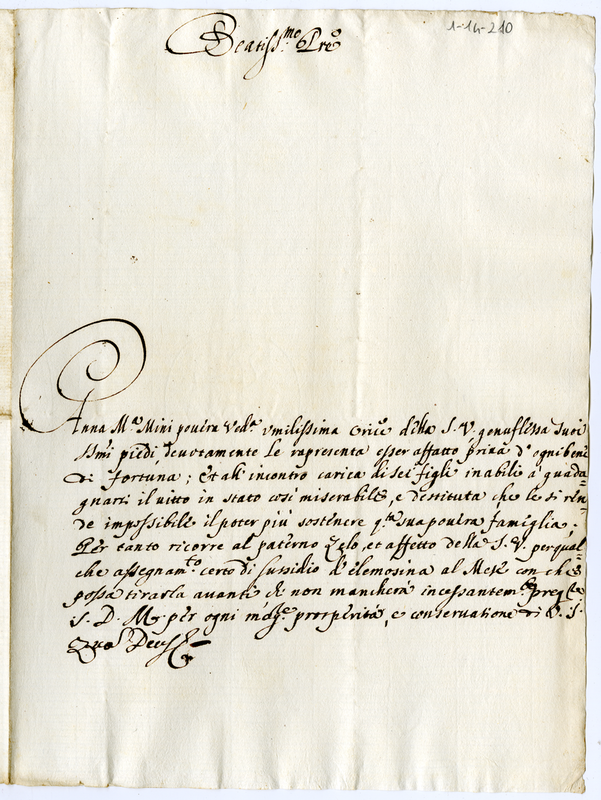 1-14-210
Beatiss.mo Pre
Anna M.a Mini povera Ved.a umilissima Oric.e della S. V. genuflessa suoi
SSmi piedi, devotamente le rapresenta esser affatto priva d'ogni beni
di fortuna; et all'incontro carica di sei figli inabili à guada=
gnarsi il vitto in stato così miserabile, e destituta che le si ren=
de impossibile il poter più sostenere q.ta sua povera famiglia;
Per tanto ricorre al paterno Zelo, et affetto della S. V. per qual=
che assegnam.to certo di sussidio d'elemosina al Mese con che
possa tirarla avanti che non mancherà incessantem.te
S. D. M. per ogni mag.e prosperità, e conservatione di V. S.
Deus